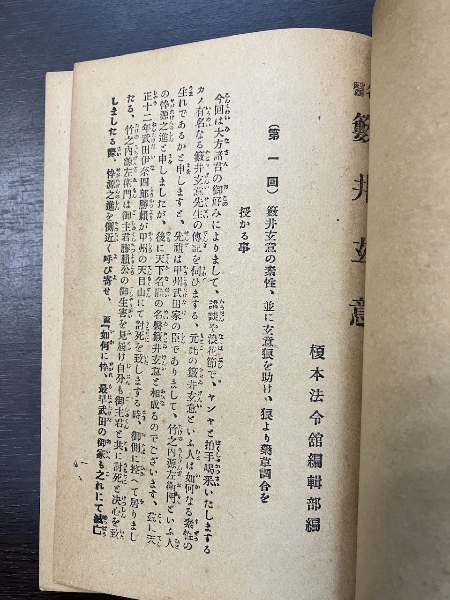 名醫 籔井玄意
榎本法令館編輯部編
（第一回）籔井玄意の素性、並に玄意猿を助け、猿より藥草調合を
授かる事
今回は大方諸君の御好みによりまして、講談や浪花節で、ヤンヤと拍手喝采いたしまする
カノ有名なる籔井玄意先生の傳記を伺ひまする、元此の籔井玄意といふ人は如何なる素性の
生れであるかと申しますと、先祖は甲州武田家の臣でありまして、竹之内源左衞門といふ人
の悴源之進と申しましたが、後に天下名題の名醫籔井玄意と相成るのでございます、茲に天
正十二年武田伊奈四郎勝賴が甲州の天目山にて討死を致しまする時、御側に控へて居りまし
たる、竹之内源左衞門は御主君勝賴公の御生害を見届け自分も御主君と共に討死と決心を致
しましたる際、悴源之進を側近く呼び寄せ、源『如何に悴、最早武田の御家も之れにて滅亡